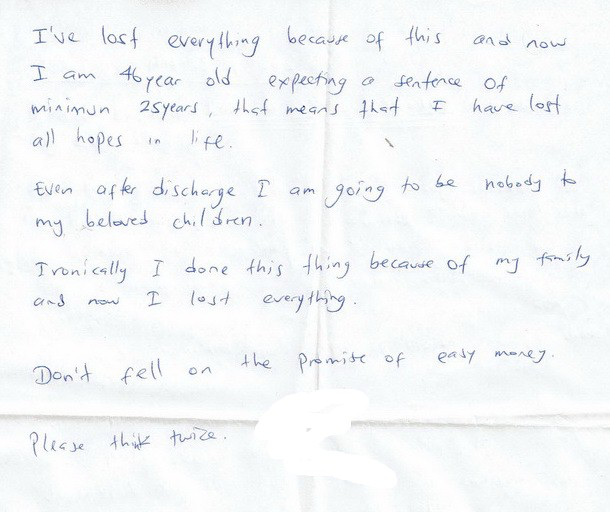 I've lost everything because of this and now
I am 46 year old expecting a sentence of
minimun 25years, that means that I have lost
all hopes in life.
Even after discharge I am going to be nobody to
my beloved children.
Ironically I done this thing because of my family
and now I lost everything.
Don't fell on the promise of easy money.
Please think twize.